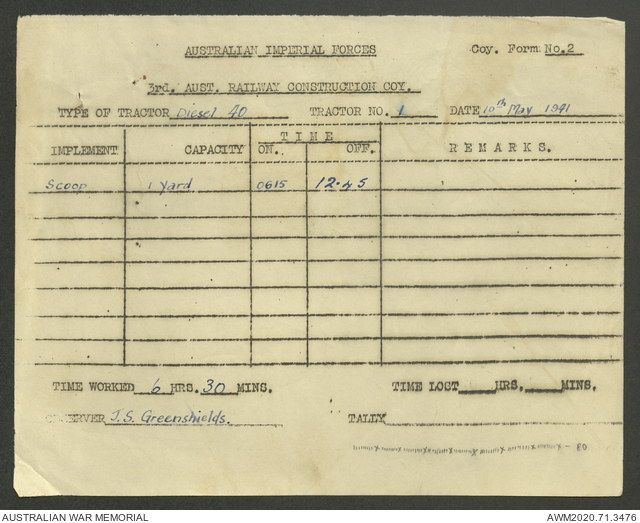 AUSTRALIAN IMPERIAL FORCES Coy. Form No.2
3rd. AUST. RAILWAY CONSTRUCTION COY.
TYPE OF TRACTOR Diesel 40 TRACTOR NO. 1 DATE 10th May 1941
TIME
IMPLEMENT CAPACITY ON. OFF. REMARKS.
Scoop 1 Yard 0615 12.45
TIME WORKED 6 HRS. 30 MINS. TIME LOST HRS, MINS.
OBSERVER J.S. Greenshields. TALLY
80
AUSTRALIAN WAR MEMORIAL AWM2020.71.3476